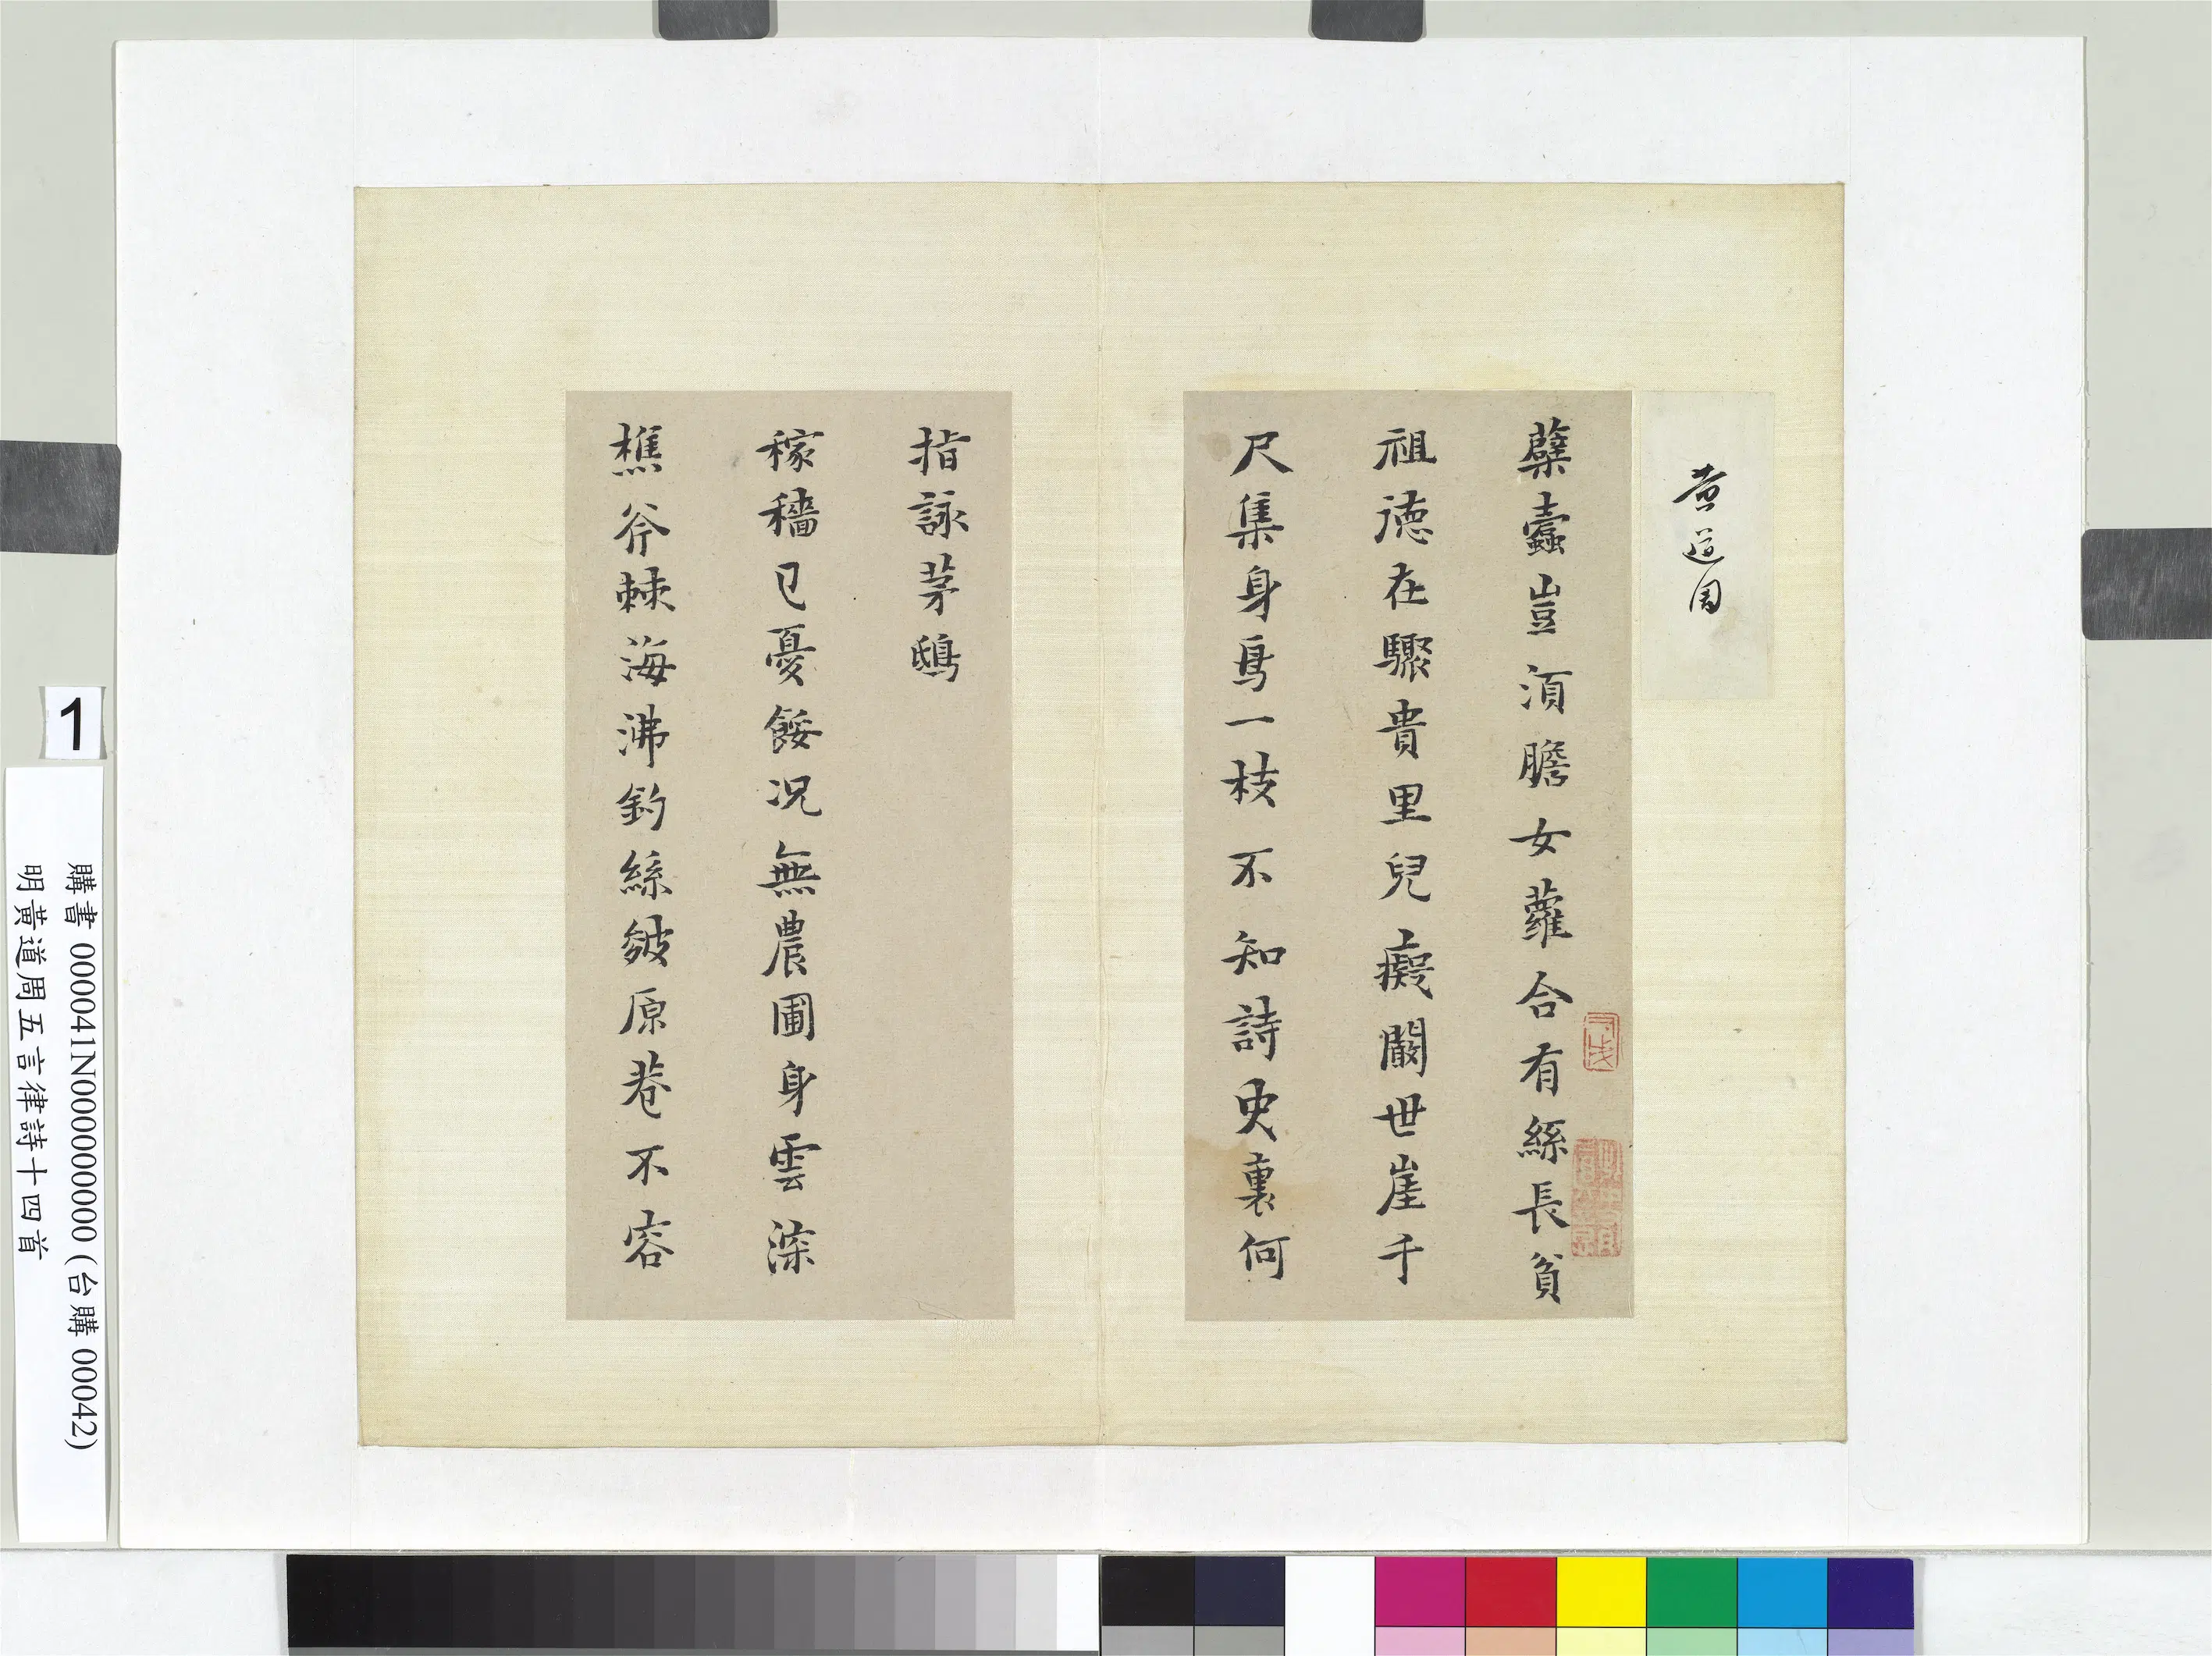 黄道周
蘗蠹豈須膽女蘿合有絲長貧
祖德在驟貴里兒癡闞世崖千
尺集身鳥一枝不知詩史裏何
指詠茅鴟
稼穡已憂餒況無農圃身雲深
樵斧棘海沸釣絲皴原巷不容
1
購書 000041N000000000 (台購 00042)
明黃道周五言律詩十四首